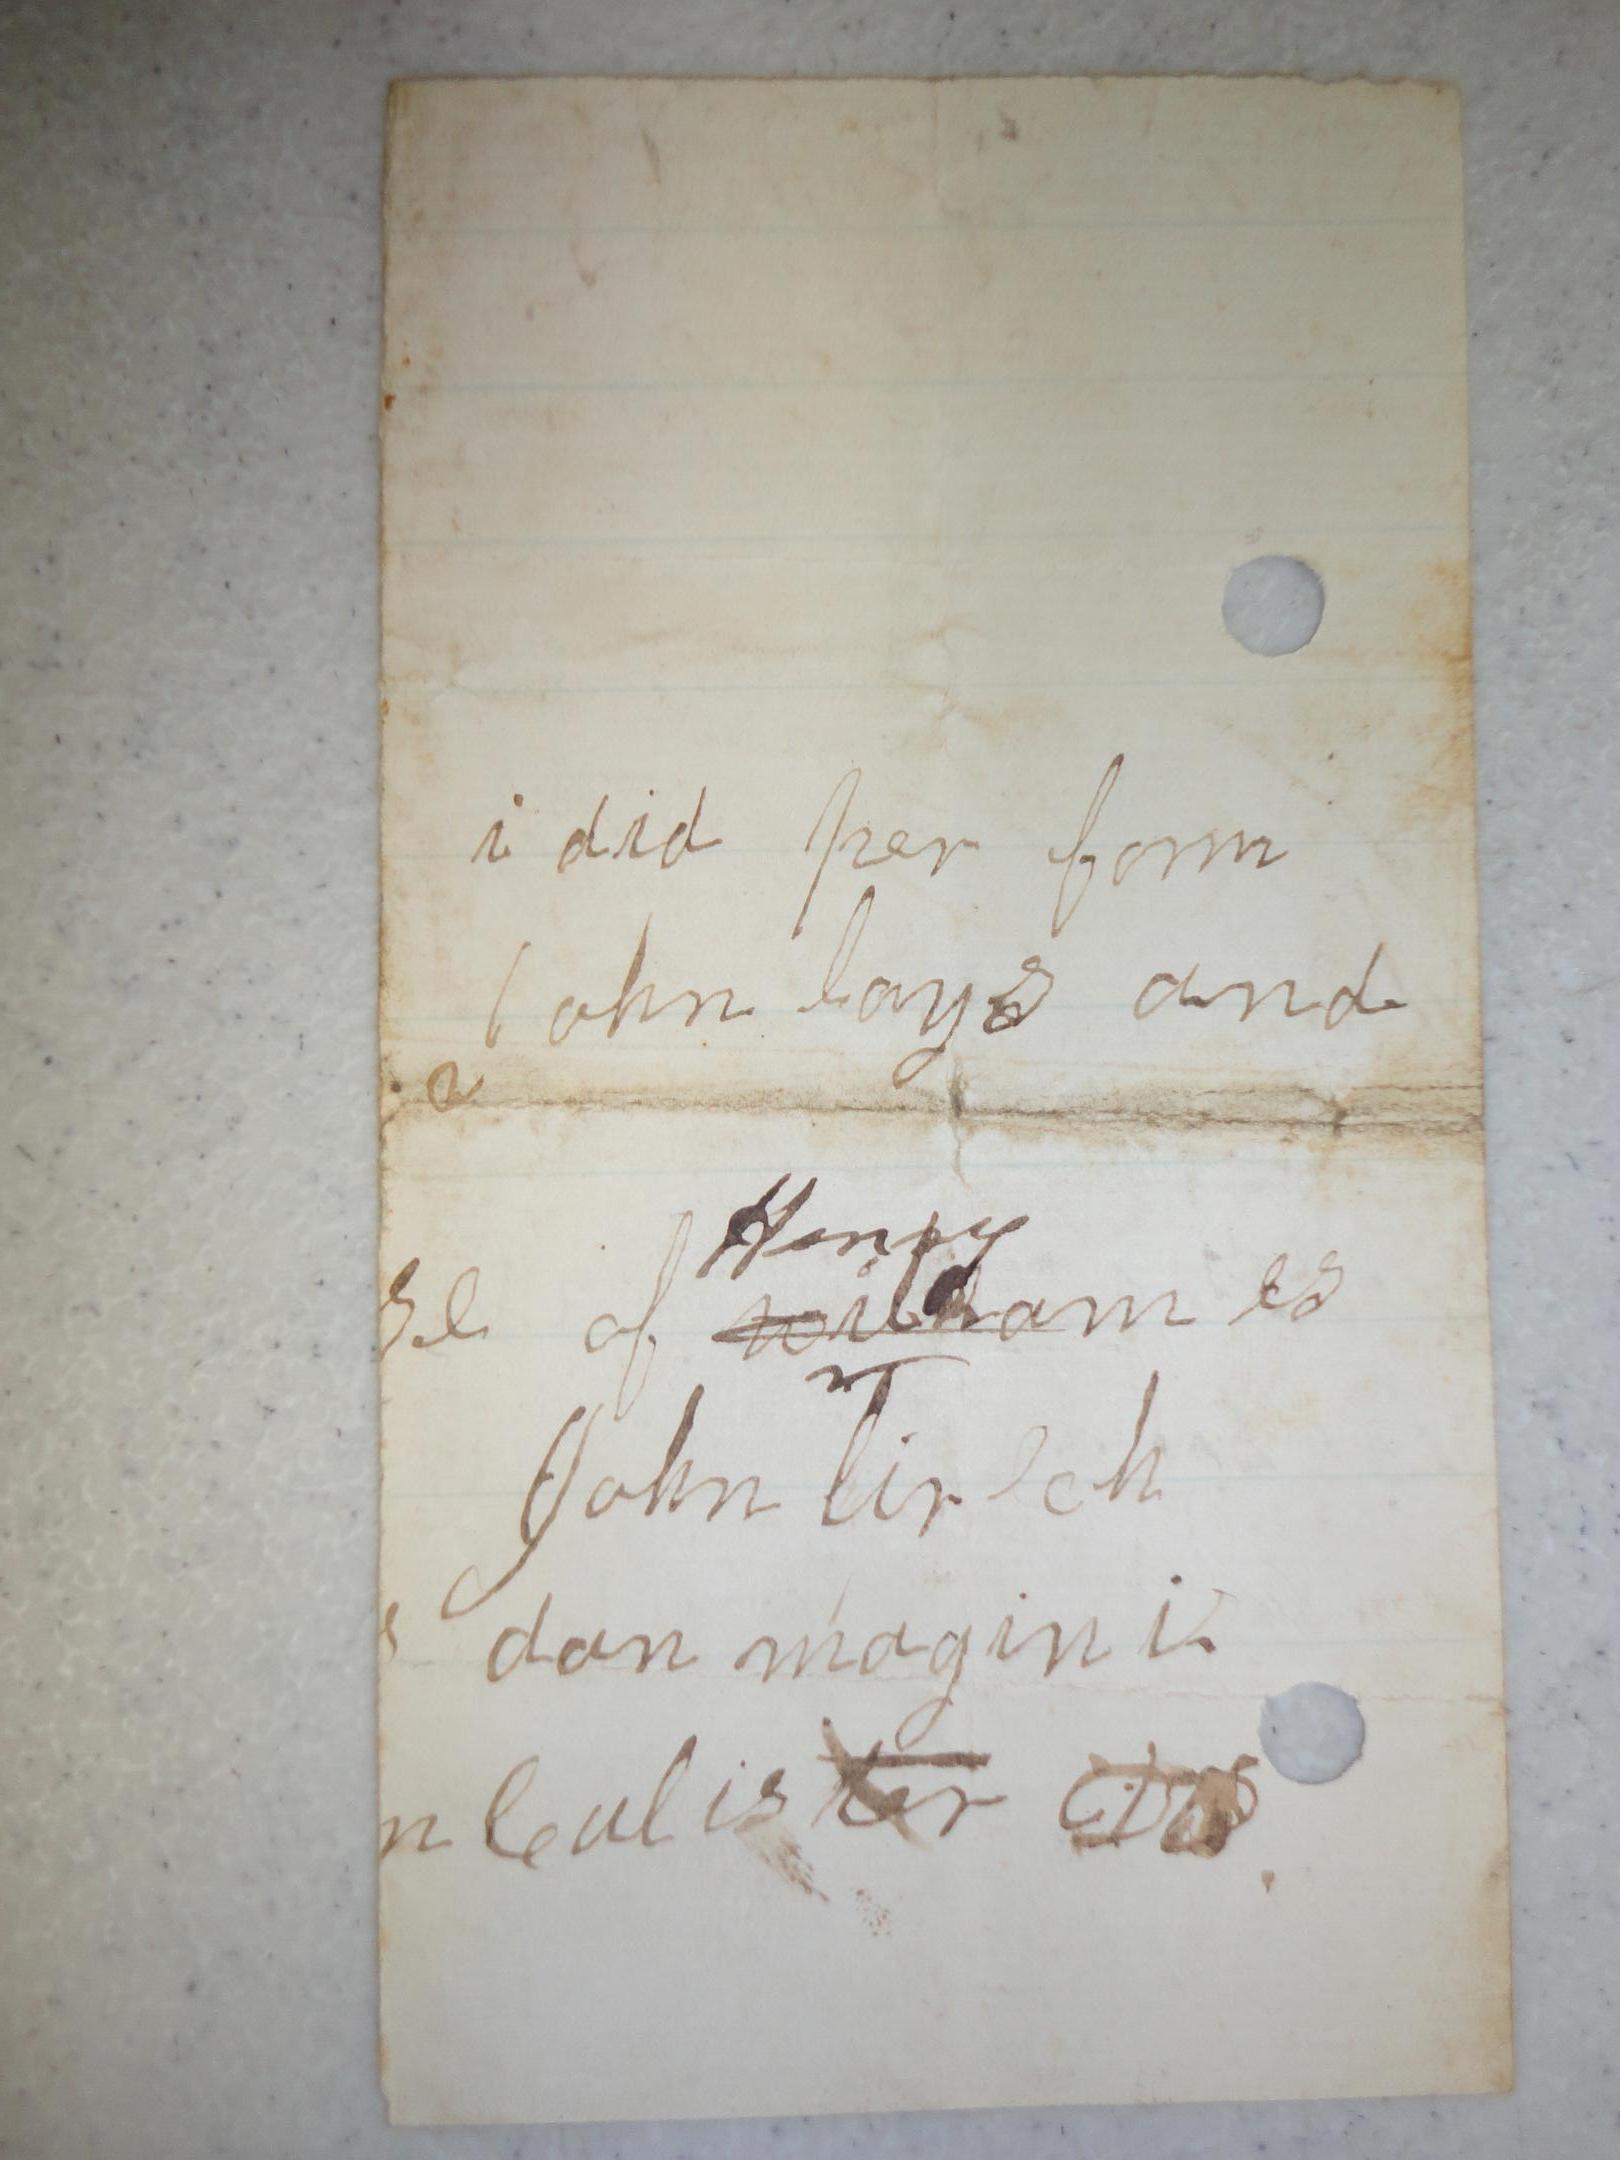 i did per form
John lays and
a
se of Henry
williams es
John tir sch
s dan magin is
n leal ister